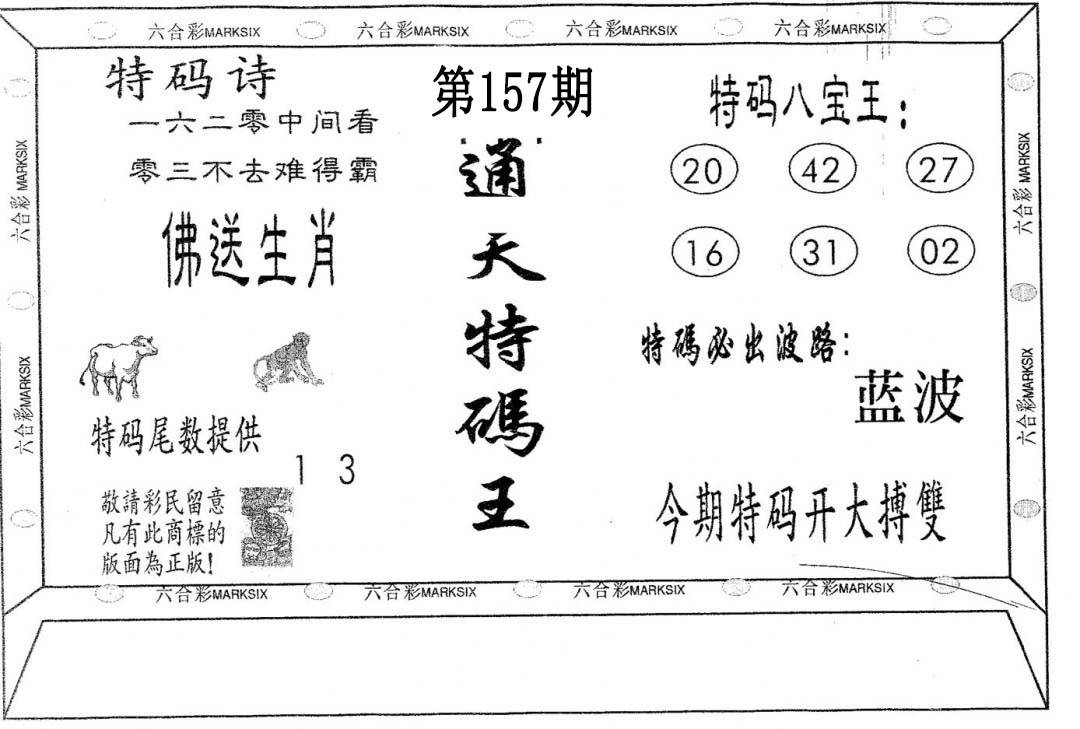 六合彩MARKSIX 六合彩MARKSIX 六合彩MARKSIX 六合彩MARKSIX
特码诗
一六二零中间看
零三不去难得霸
佛送生肖
特码尾数提供
1 3
敬請彩民留意
凡有此商標的
版面為正版!
第157期
通
天
特
碼
王
特码八宝王:
20 42 27
16 31 02
特碼必出波路:
蓝波
今期特码开大搏雙
六合彩 MARKSIX
六合彩MARKSIX
六合彩 MARKSIX
六合彩MARKSIX
六合彩MARKSIX 六合彩MARKSIX 六合彩MARKSIX 六合彩MARKSIX